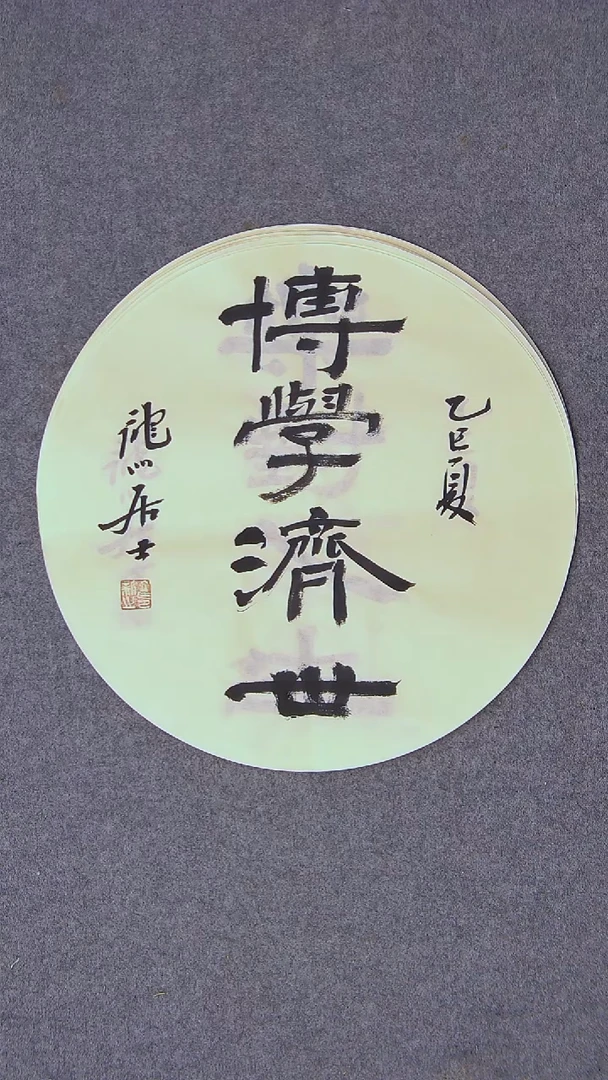 乙巳夏
博學濟世
龍山居士